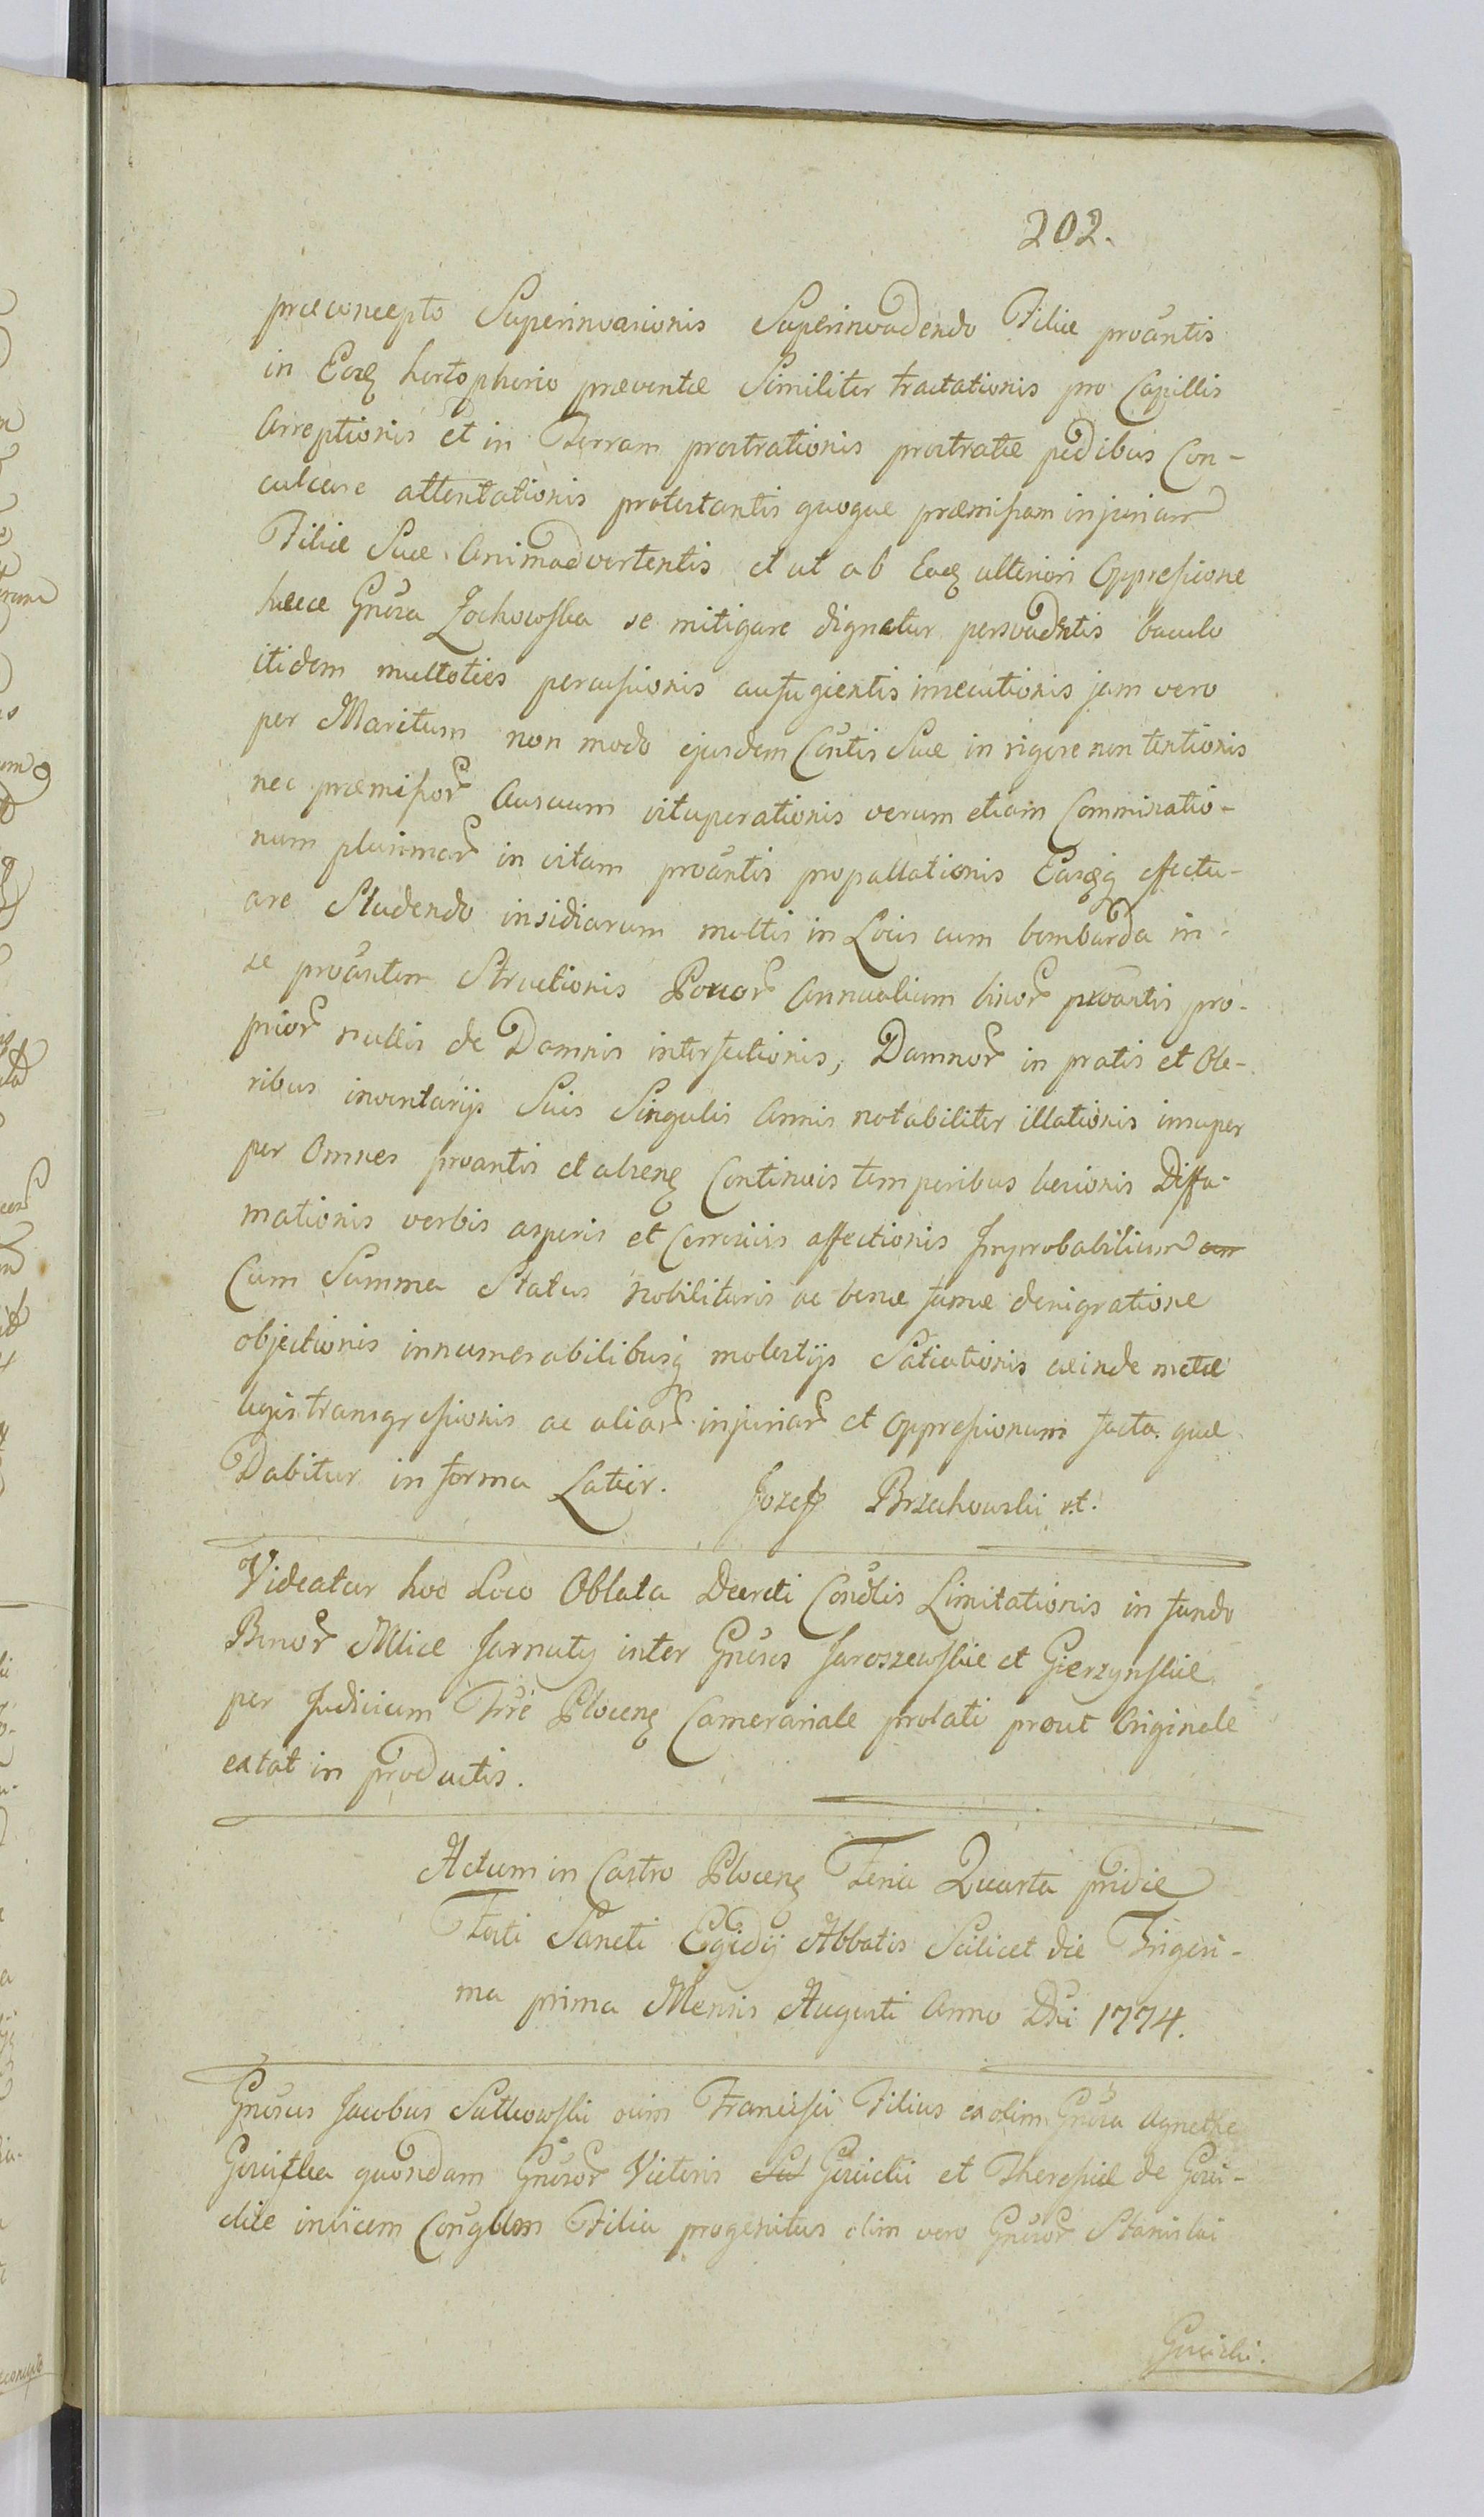 202.
præconcepto Superinvasionis Superinvadendo Filiæ proãntis
in Eodẽ hortophorio præventæ Similiter tractationis pro Capillis
Arreptionis et in Terram prostrationis prostratæ pedibus Con-
culcare attentationis protestantis quoque præmissam injuriam
Filiæ Suæ Animadvertentis et ut ab Eadẽ ulteriori Oppressione
hæce Gnõsa Zochowska se mitigare dignetur persvadentis baculo
itidem multoties percussionis aufugientis insecutionis jam vero
per Maritum non modo ejusdem Cõntis Suæ in rigore non tentionis
nec præmissoꝝ Ausuum vituperationis verum etiam Comminatio-
num plurimaꝝ in vitam proãntis propallationis Easqꝫ effectu-
are Studendo insidiarum multis in Locis cum bombarda in
se proãntem Structionis Porcoꝝ Annualium binoꝝ proãntis pro-
prioꝝ nullis de Damnis interfectionis, Damnoꝝ in pratis et Ole-
ribus inventarijs Suis Singulis Annis notabiliter illationis insuper
per Omnes proantis et alienẽ Continuis temporibus læsionis Diffa-
mationis verbis asperis et Convicijs affectionis Improbabilium
Cum Summa Status nobilitaris ac bonæ famæ denigratione
objectionis innumerabilibusqꝫ molestijs Satiationis exinde metæ
legis transgressionis ac aliaꝝ injuriaꝝ et Oppressionum facta. quæ
Dabitur in forma Latior. Jozeff Brzechowski
Videatur hoc Loco Oblata Decreti Condlis Limitationis in fundo
Bonoꝝ Mliæ Jarnuty inter Gnõsos Jaroszewskie et Gierzynskie
per Judicium Trrẽ Plocenẽ Camerariale prolati prout Originale
extat in productis.
Actum in Castro Plocenẽ Feria Quarta pridie
Festi Sancti Egidij Abbatis Scilicet die Trigesi-
ma prima Mensis Augusti Anno Dñi 1774.
Gnõsus Jacobus Sutkowski olim Francisci Filius ex olim Gnõsa Agnethe
quondam Gnõsoꝝ Victoris et Theresiæ de
invicem Conjgum Filia progenitus olim vero Gnõsoꝝ Stanislai